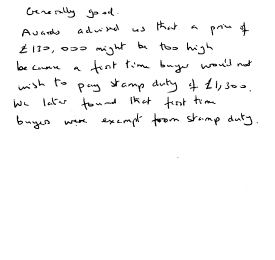 Generally good.
Awards advised us that a price of
£130,000 might be too high
because a first time buyer would not
wish to pay stamp duty of £1,300.
We later found that first time
buyers were exempt from stamp duty.